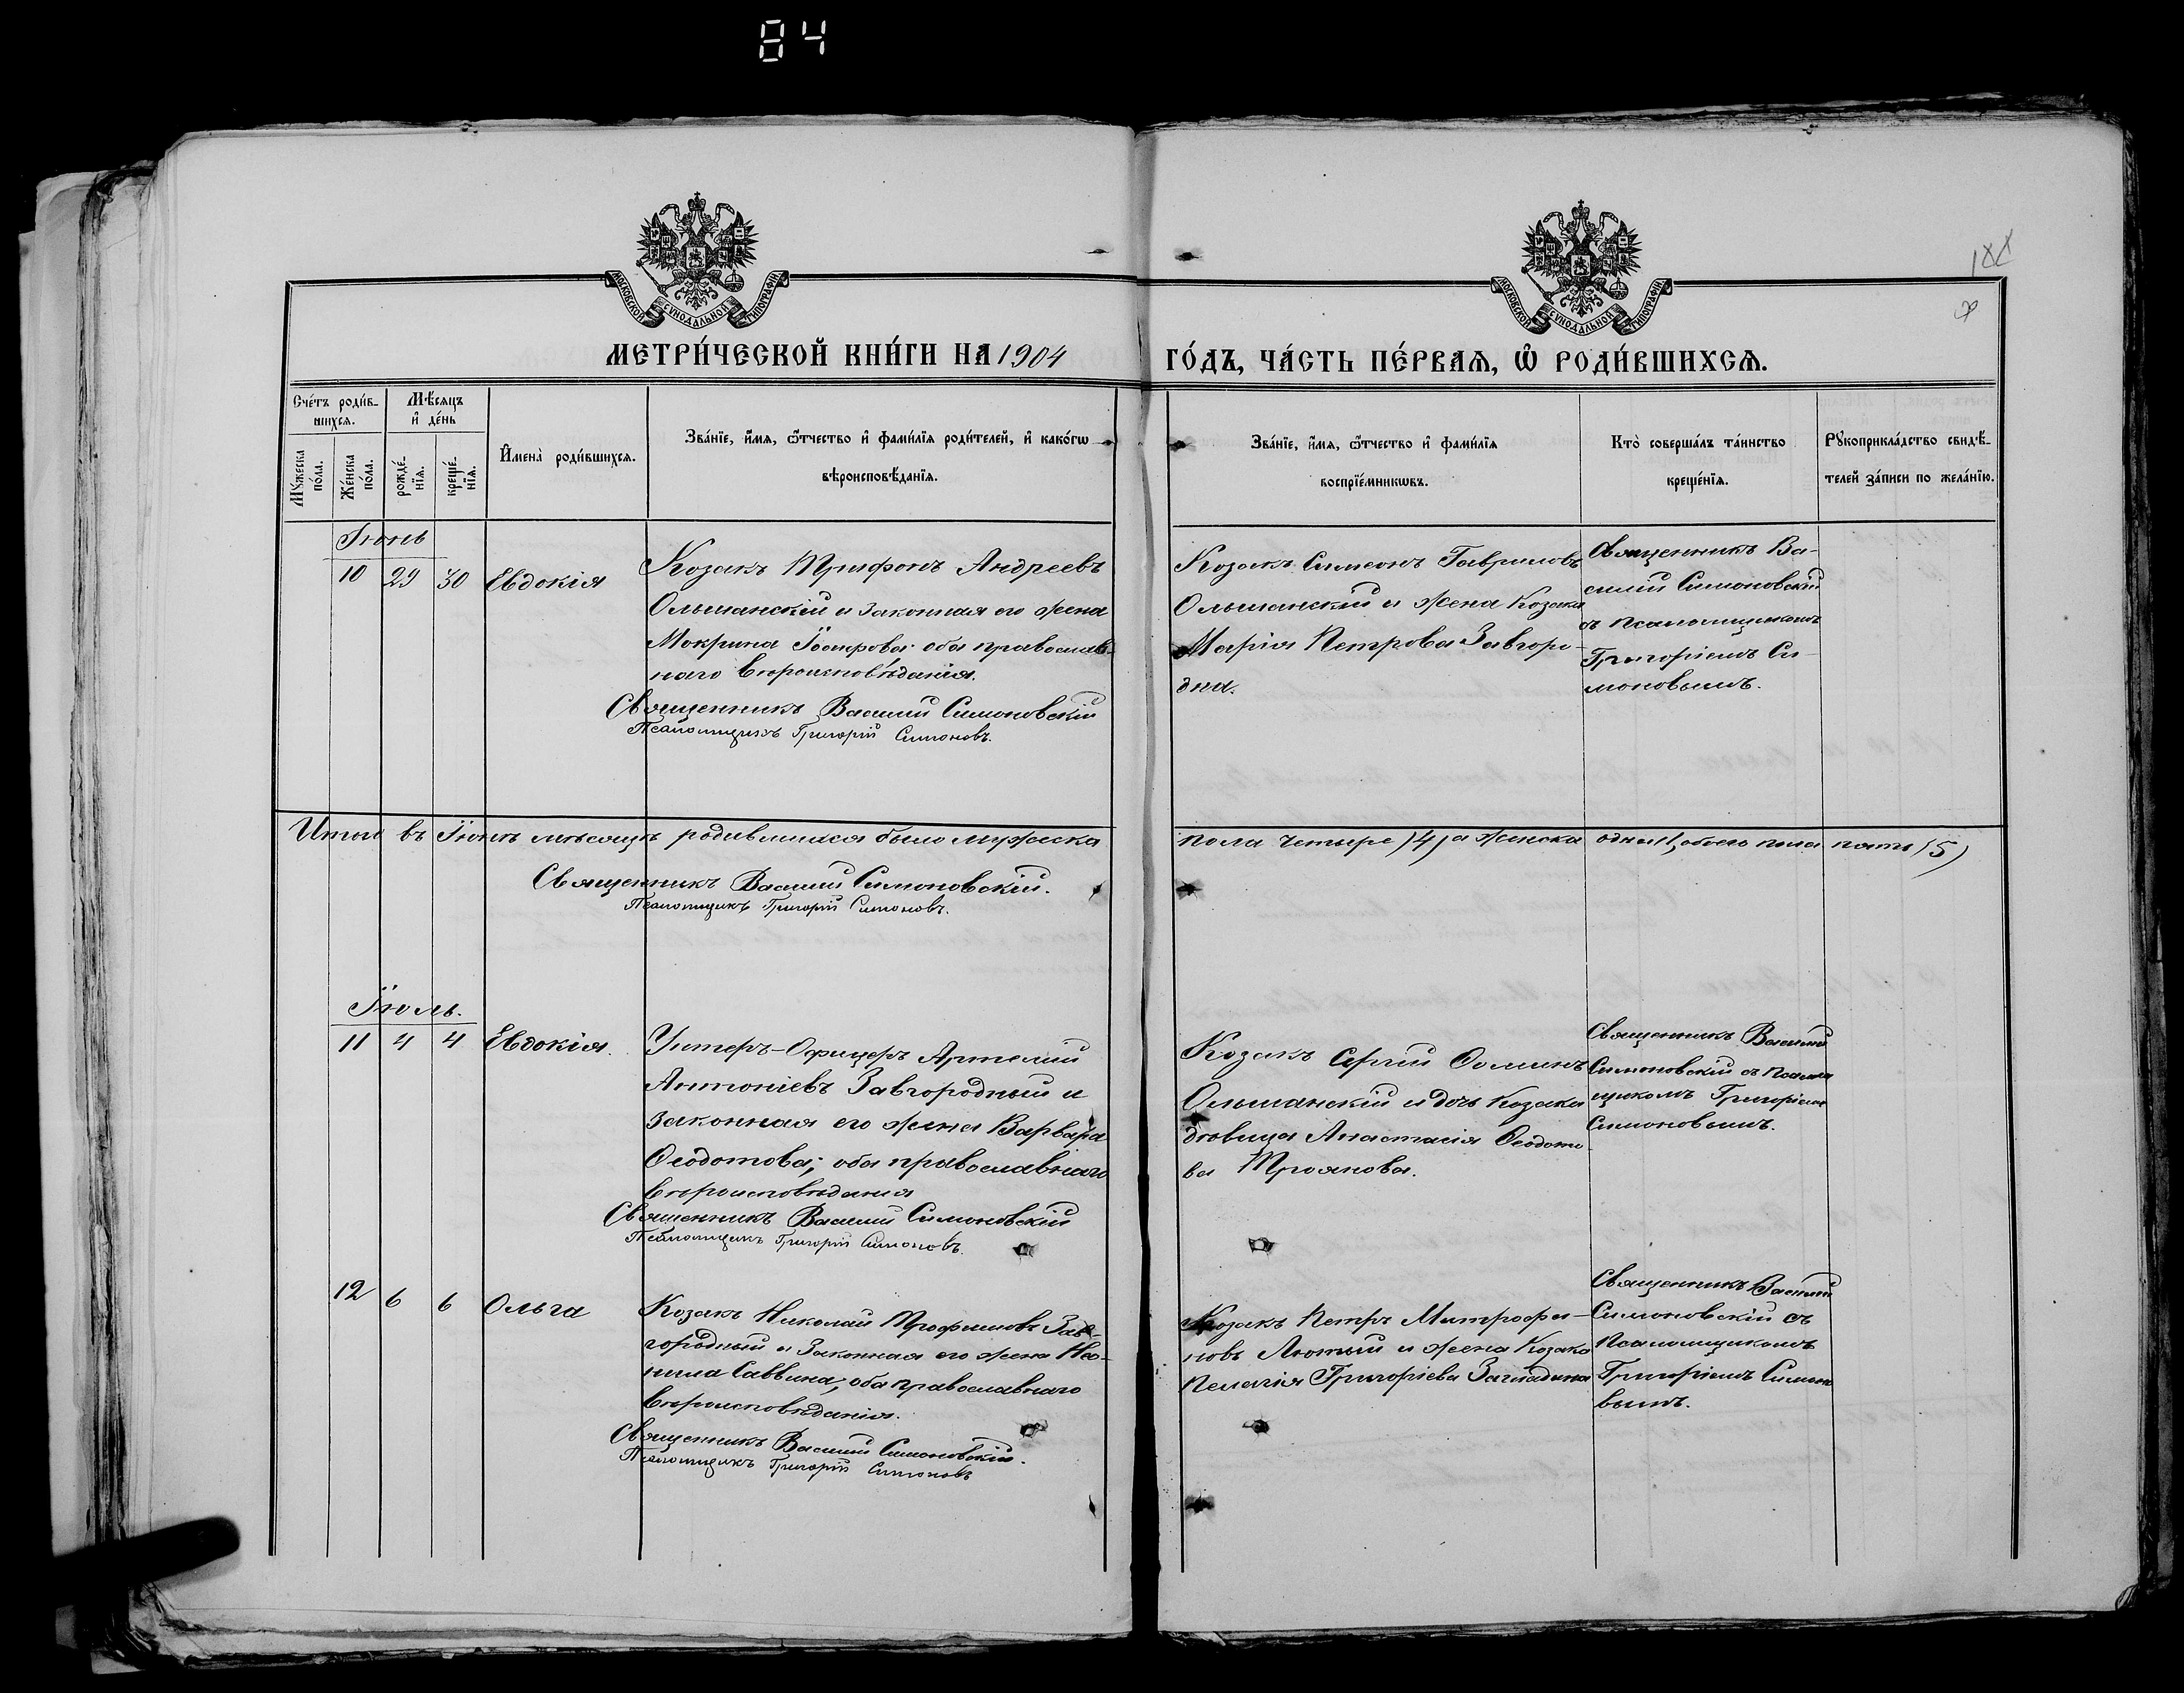 84
188
МОСКОВСКОЙ СУНОДАЛЬНОЙ ТИПОГРАФІИ
МОСКОВСКОЙ СУНОДАЛЬНОЙ ТИПОГРАФІИ
МЕТРИ́ЧЕСКОЙ КНИ́ГИ НА 1904
ГО́ДЪ, ЧА́СТЬ ПЕ́РВАѦ, Ѡ҆ РОДИ́ВШИХСѦ.
Сче́тъ роди́в-
шихсѧ.
Мꙋ́жеска
по́ла.
Же́нска
по́ла.
Мѣ́сѧцъ
и҆ де́нь
рожде́-
нїѧ.
креще́-
нїѧ.
И҆мена̀ роди́вшихсѧ.
Зва́нїе, и҆́мѧ, ѻ҆́тчество и҆ фами́лїѧ роди́телей, и҆ како́гѡ
вѣроисповѣ́данїѧ.
Зва́нїе, и҆́мѧ, ѻ҆́тчество и҆ фами́лїѧ
воспрїе́мникѡвъ.
Кто̀ соверша́лъ та́инство
креще́нїѧ.
Рꙋкоприкла́дство свидѣ́-
телей за́писи по жела́нїю.
Іюнь
10 29 30 Евдокія
Козакъ Трифонъ Андреевъ
Ольшанскій и законная его жена
Мокрина оба православ-
наго вѣроисповѣданія.
Священникъ Василій Симоновскій
Псаломщикъ Григорій Симоновъ.
Козакъ Симеонъ Гавриловъ
Ольшанскій и жена Козака
Марія Петрова Завгоро-
дня.
Священникъ Ва-
силій Симоновскій
съ псаломщикомъ
Григоріемъ Си-
моновымъ.
Итого въ Іюнѣ мѣсяцѣ родившихся было мужеска
пола четыре (4) а женска одна (1), обоего пола пять (5)
Священникъ Василій Симоновскій.
Псаломщикъ Григорій Симоновъ.
Іюль.
11 4 4 Евдокія.
Унтеръ-Офицеръ Артемій
Антоніевъ Завгородный и
законная его жена Варвара
Ѳеодотова; оба православнаго
вѣроисповѣданія
Священникъ Василій Симоновскій
Псаломщикъ Григорій Симоновъ.
Козакъ Сергій Ѳоминъ
Ольшанскій и дочь Козака
дѣвица Анастасія Ѳеодото-
ва Троянова.
Священникъ Василій
Симоновскій съ псалом
щикомъ Григоріем
Симоновымъ.
12 6 6 Ольга
Козакъ Николай Трофимовъ Зав-
городный и законная его жена Нео-
нила Саввина; оба православнаго
вѣроисповѣданія.
Священникъ Василій Симоновскій.
Псаломщикъ Григорій Симоновъ
Козакъ Петръ Митрофа-
новъ Лютый и жена Козака
Пелагія Григоріева
Священникъ Василій
Симоновскій съ
Псаломщикомъ
Григоріемъ Симоно
вымъ.